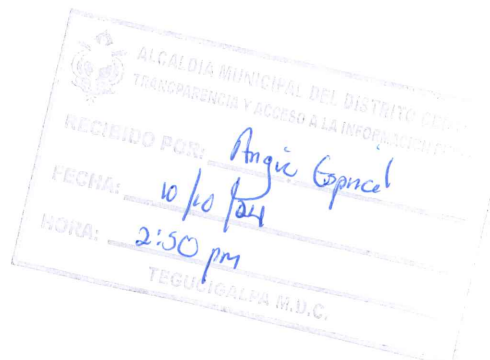 ALCALDIA MUNICIPAL DEL DISTRITO
TRANCPARENCIA Y ACCESO A LA INFORMACION
RECIBIDO POR: Angie
FECHA: 10/10/24
HORA: 2:50 pm
TEGUCIGALPA M.D.C.